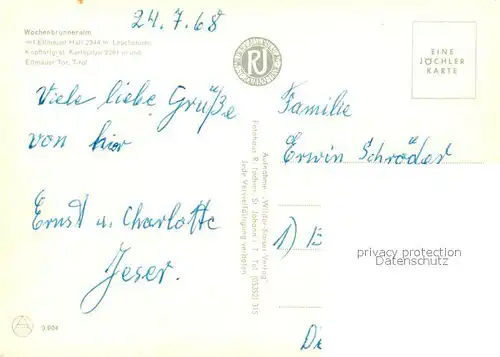 24.7.68
Wochenbrunneralm
mit Ellmauer Halt 2344 m
Ellmauer Tor, Tirol
EINE
JÖCHLER
KARTE
RJ
Viele liebe Grüße
von hier
Ernst u. Charlotte
Jeser.
Familie
Erwin Schröder
1)
Aufnahme „Wilder-Kaiser-Verlag“
Fotohaus R. Jöchler, St. Johann i. T. Tel. (05352) 315
Jede Vervielfältigung verboten
privacy protection
Datenschutz